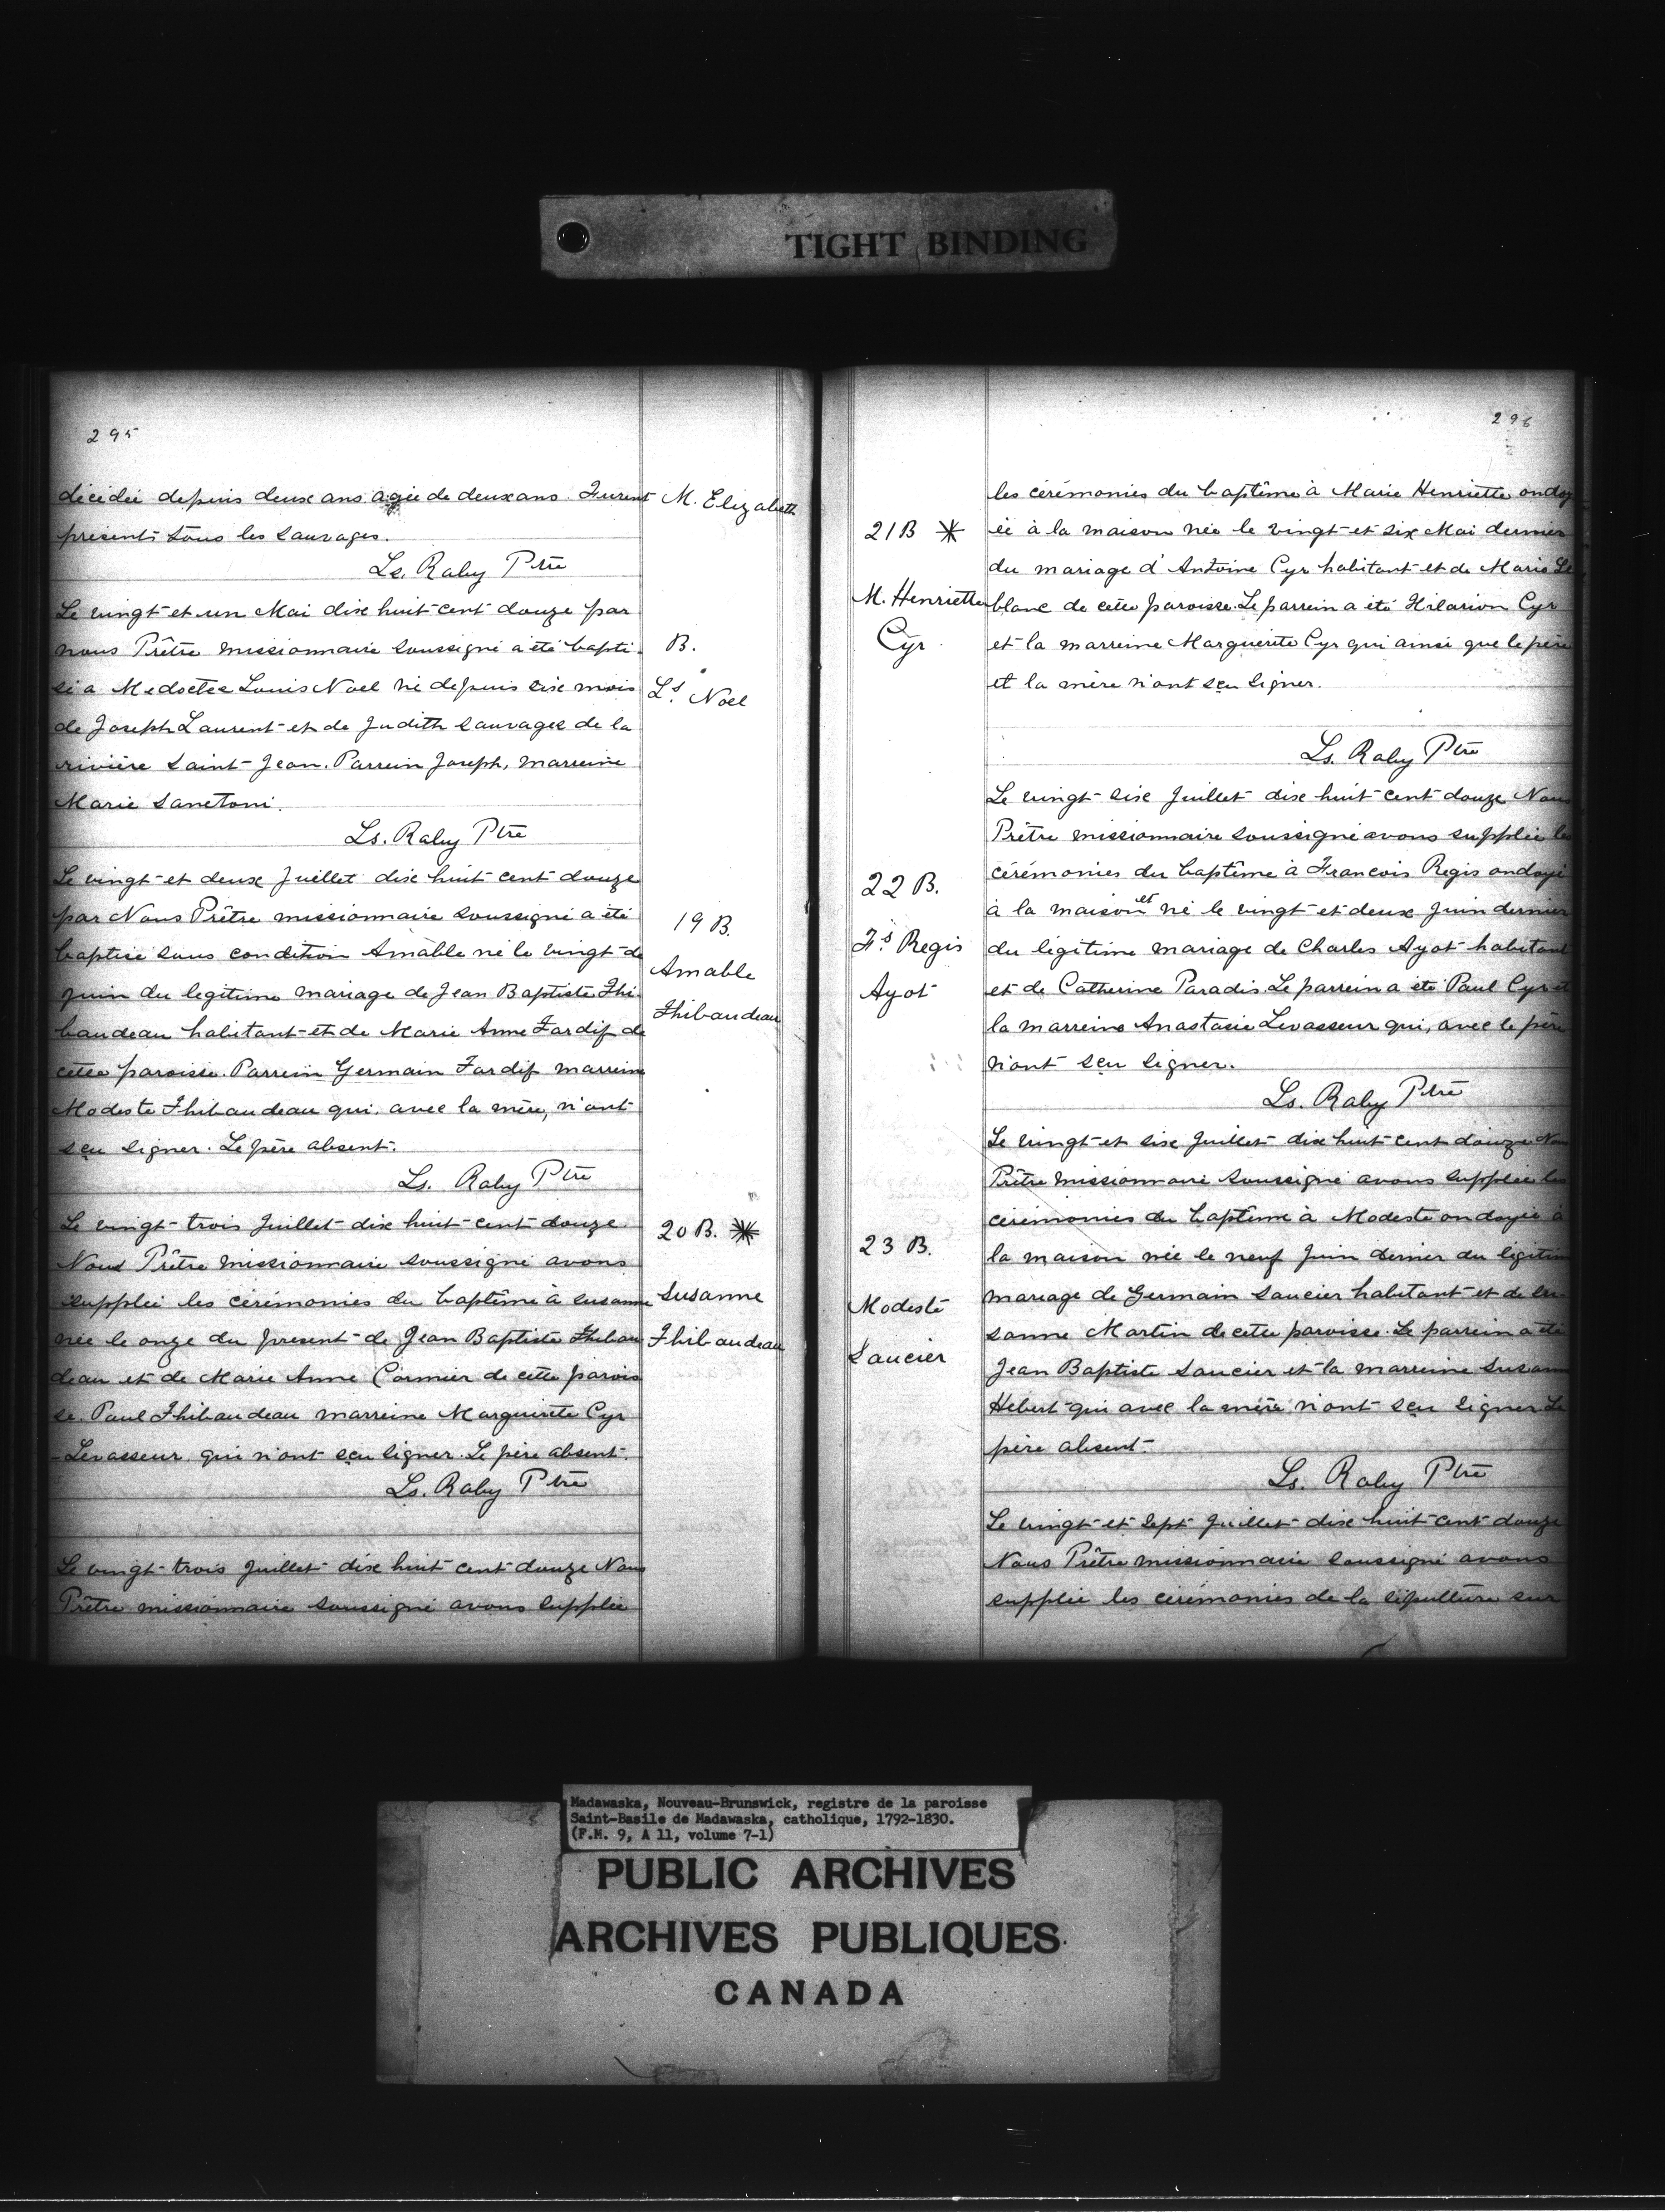 TIGHT BINDING
295
décédée depuis deux ans agée de deux ans. Furent
présents tous les sauvages.
Ls. Raby Ptre
M. Elizabeth
Le vingt et un Mai dix huit cent douze par
nous Prêtre missionnaire soussigné a été bapti
sé a Medoctec Louis Noel né depuis six mois
de Joseph Laurent et de Judith sauvages de la
rivière Saint-Jean. Parrein Joseph, marreine
Marie Sanctoni.
Ls. Raby Ptre
B.
Ls Noel
Le vingt et deux Juillet dix huit cent douze
par Nous Prêtre missionnaire soussigné a été
baptisé sous condition Amable né le vingt de
juin du legitime mariage de Jean Baptiste Thi
baudeau habitant et de Marie Anne Tardif de
cette paroisse. Parrein Germain Tardif marreine
Modeste Thibaudeau qui, avec la mère, n'ont
sçu signer. Le père absent.
Ls. Raby Ptre
19 B.
Amable
Thibaudeau
Le vingt-trois Juillet dix huit cent douze
Nous Prêtre missionnaire soussigné avons
supplée les cérémonies du baptême à Susanne
née le onze du present de Jean Baptiste Thibau
deau et de Marie Anne Cormier de cette parois
se. Paul Thibaudeau marreine Marguerite Cyr
Levasseur qui n'ont sçu signer. Le père absent.
Ls. Raby Ptre
20 B. *
Susanne
Thibaudeau
Le vingt-trois Juillet dix huit cent douze Nous
Prêtre missionnaire soussigné avons supplée
296
les cérémonies du baptême à Marie Henriette ondoy
ée à la maison née le vingt et six Mai dernier
du mariage d'Antoine Cyr habitant et de Marie Le
blanc de cette paroisse. Le parrein a été Hilarion Cyr
et la marreine Marguerite Cyr qui ainsi que le père
et la mère n'ont sçu signer.
Ls. Raby Ptre
21 B *
M. Henriette
Cyr
Le vingt-six Juillet dix huit cent douze Nous
Prêtre missionnaire soussigné avons supplée les
cérémonies du baptême à Francois Regis ondoyé
à la maison et né le vingt et deux Juin dernier
du légitime mariage de Charles Ayot habitant
et de Catherine Paradis. Le parrein a été Paul Cyr et
la marreine Anastasie Levasseur qui, avec le père
n'ont sçu signer.
Ls. Raby Ptre
22 B.
Fs Regis
Ayot
Le vingt et six Juillet dix huit cent douze Nous
Prêtre missionnaire soussigné avons supplée les
cérémonies du baptême à Modeste ondoyée à
la maison née le neuf Juin dernier du légitime
mariage de Germain Saucier habitant et de Su
sanne Martin de cette paroisse. Le parrein a été
Jean Baptiste Saucier et la marreine Susanne
Hebert qui avec la mère n'ont sçu signer. Le
père absent.
Ls. Raby Ptre
23 B.
Modeste
Saucier
Le vingt et sept Juillet dix huit cent douze
Nous Prêtre missionnaire soussigné avons
supplée les cérémonies de la sépulture sur
Madawaska, Nouveau-Brunswick, registre de la paroisse
Saint-Basile de Madawaska, catholique, 1792-1830.
(F.M. 9, A 11, volume 7-1)
PUBLIC ARCHIVES
ARCHIVES PUBLIQUES
CANADA